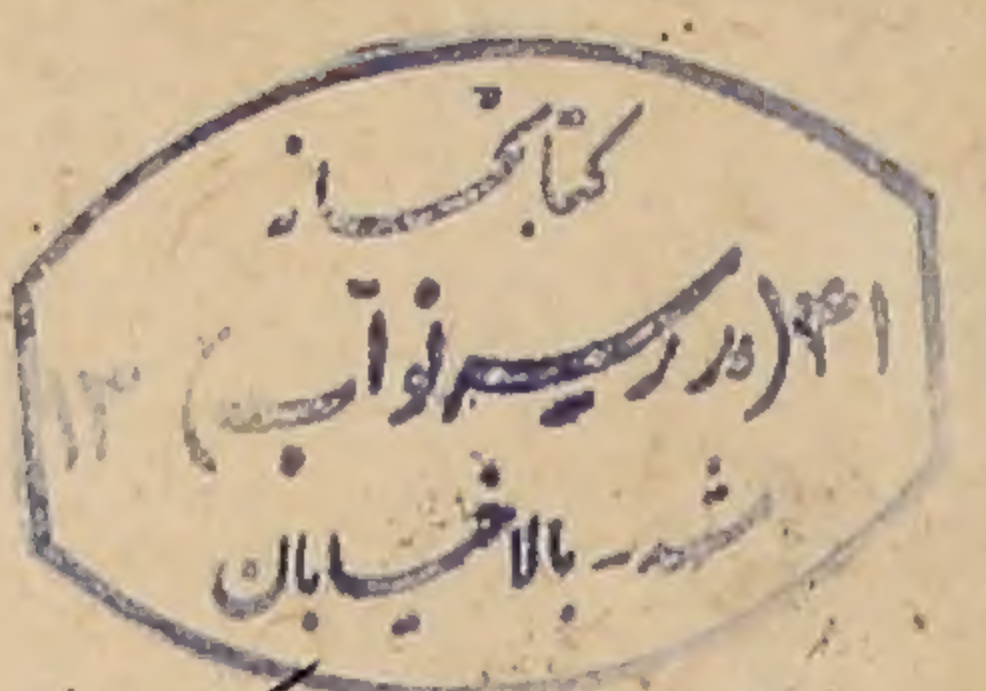 کتابخانه
۴۱ (مدرسه نواب) ۱۳
مشهد - بالا خیابان